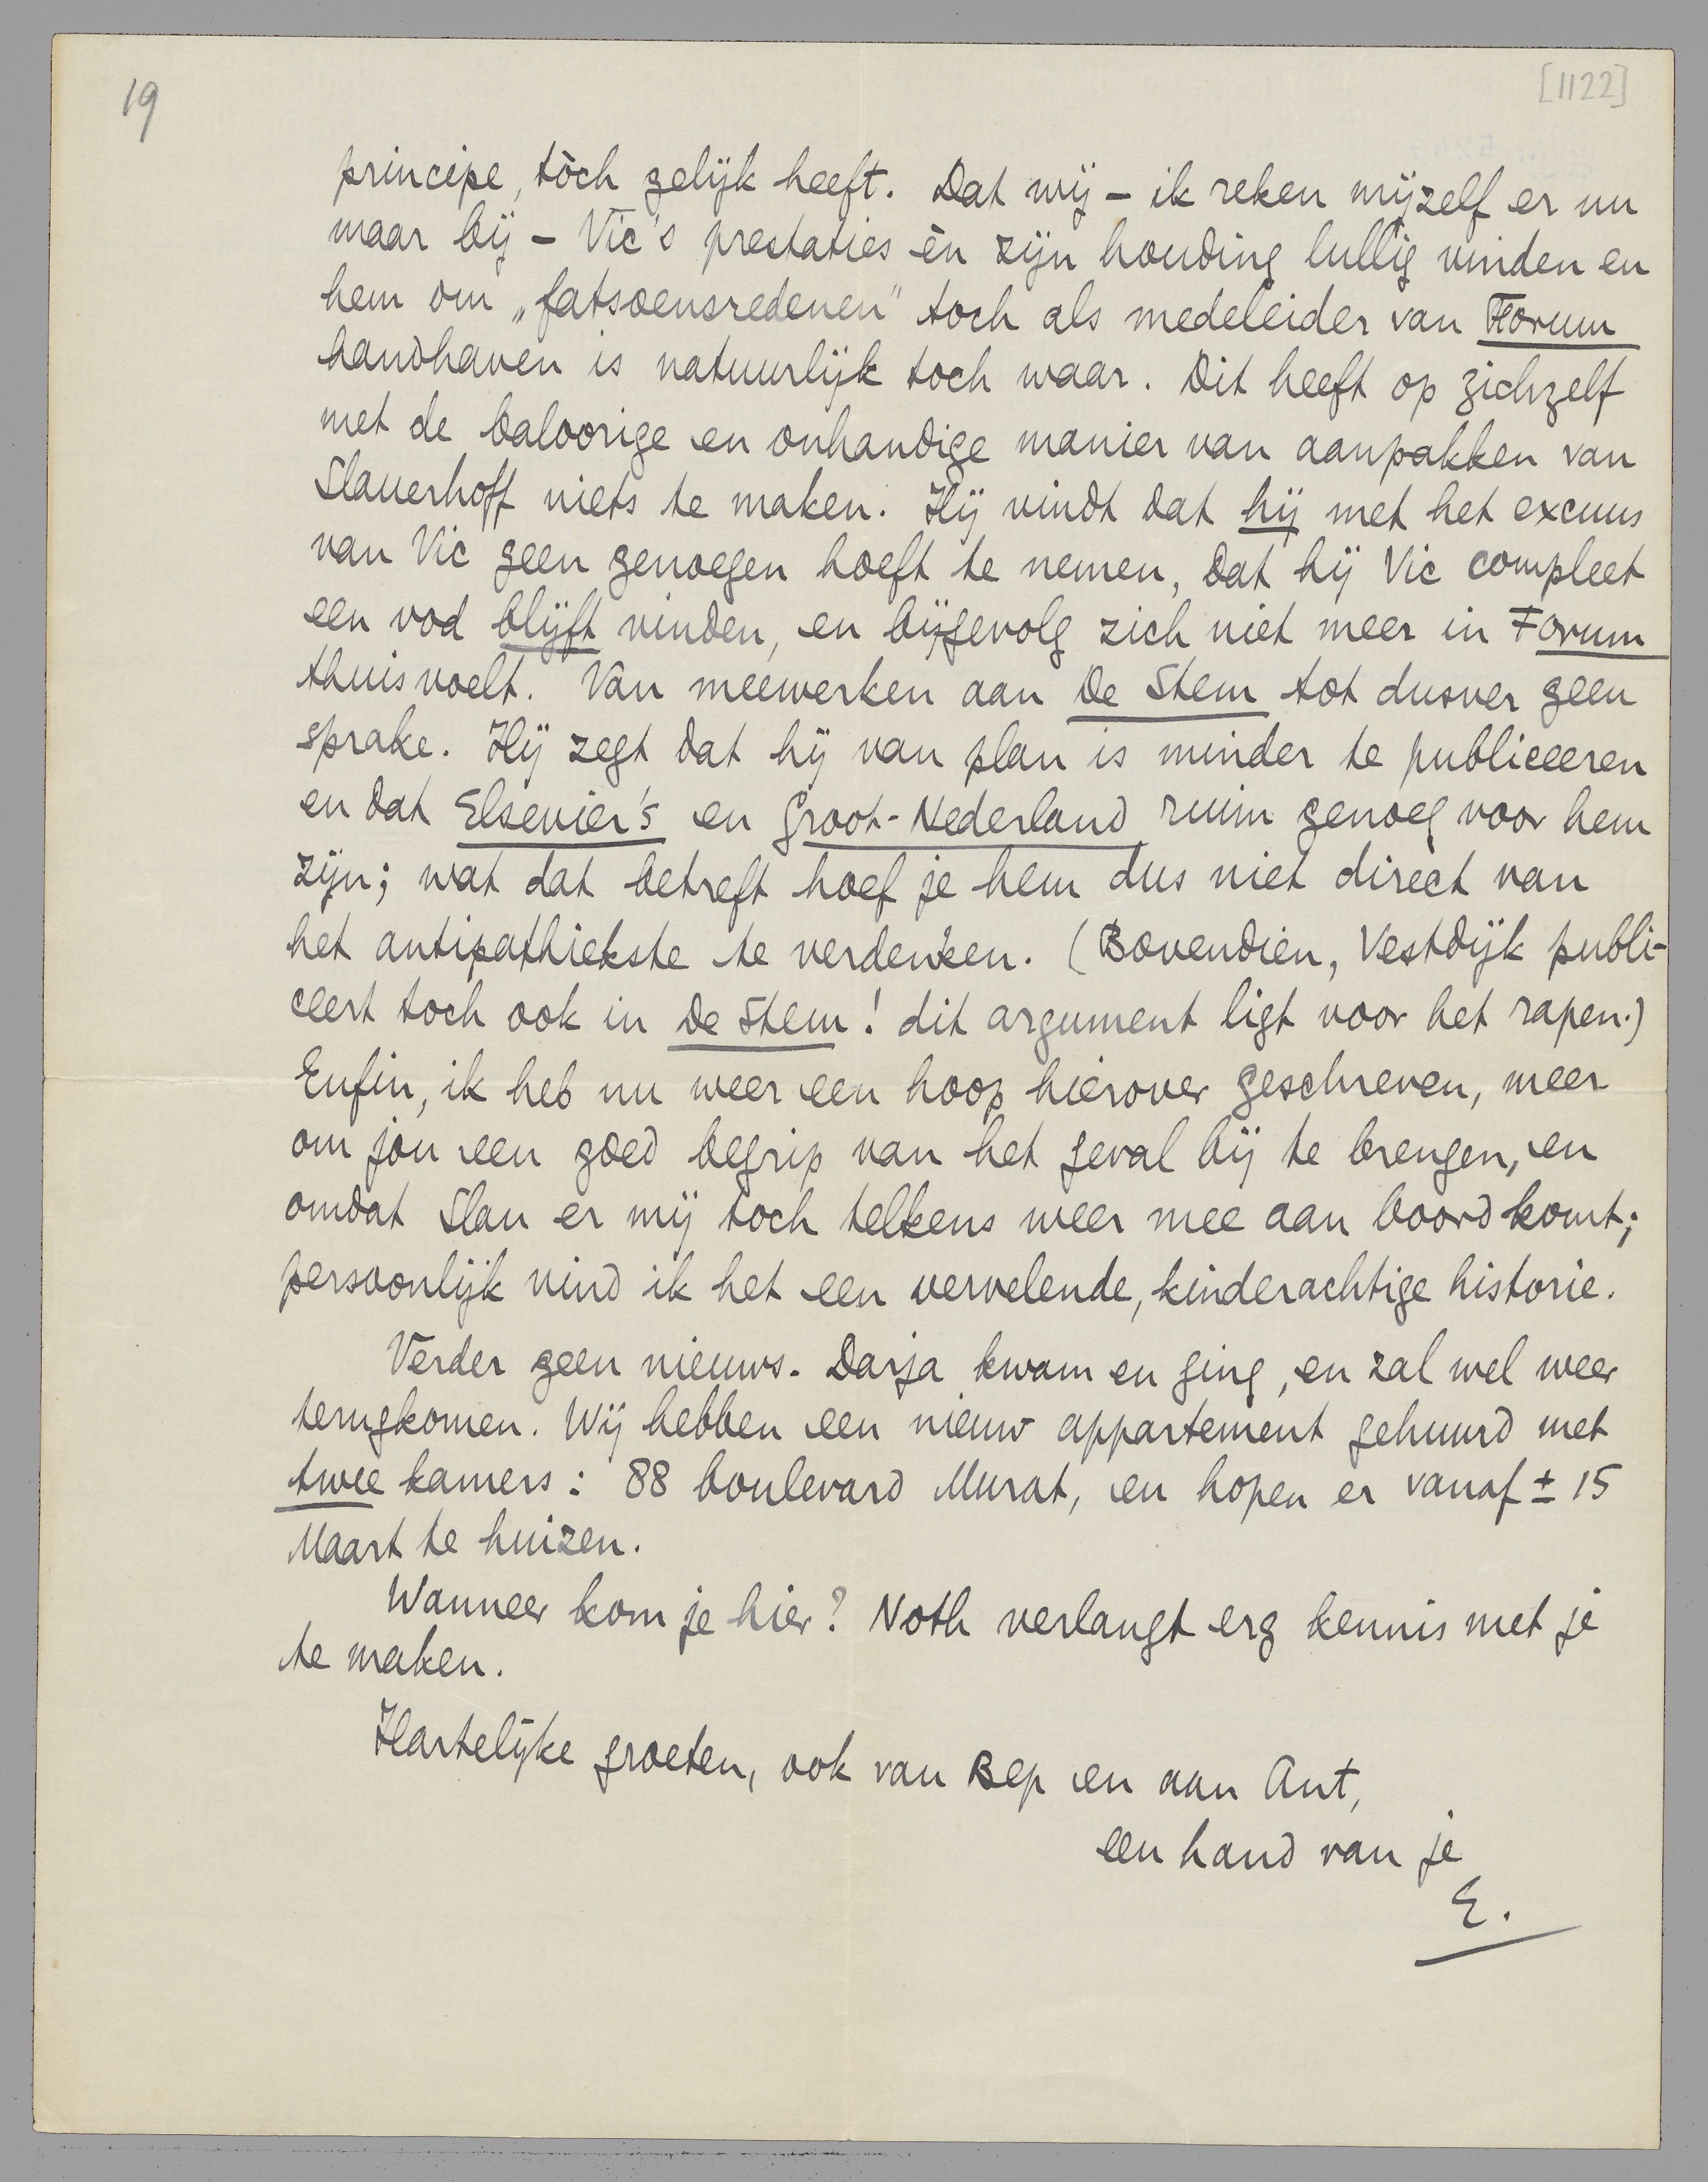 19
[1122]
principe, tòch gelijk heeft. Dat wij – ik reken mijzelf er nu
maar bij – Vic's prestaties èn zijn houding lullig vinden en
hem om „fatsoensredenen" toch als medeleider van Forum
handhaven is natuurlijk toch waar. Dit heeft op zichzelf
met de baloorige en onhandige manier van aanpakken van
Slauerhoff niets te maken. Hij vindt dat hij met het excuus
van Vic geen genoegen hoeft te nemen, dat hij Vic compleet
een vod blijft vinden, en bijgevolg zich niet meer in Forum
thuisvoelt. Van meewerken aan De Stem tot dusver geen
sprake. Hij zegt dat hij van plan is minder te publiceeren
en dat Elsevier's en Groot-Nederland ruim genoeg voor hem
zijn; wat dat betreft hoef je hem dus niet direct van
het antipathiekste te verdenken. (Bovendien, Vestdijk publi-
ceert toch ook in De Stem! dit argument ligt voor het rapen.)
Enfin, ik heb nu weer een hoop hierover geschreven, meer
om jou een goed begrip van het geval bij te brengen, en
omdat Slau er mij toch telkens weer mee aan boord komt;
persoonlijk vind ik het een vervelende, kinderachtige historie.
Verder geen nieuws. Darja kwam en ging, en zal wel weer
terugkomen. Wij hebben een nieuw appartement gehuurd met
twee kamers: 88 boulevard Murat, en hopen er vanaf ± 15
Maart te huizen.
Wanneer kom je hier? Noth verlangt erg kennis met je
te maken.
Hartelijke groeten, ook van Bep en aan Ant,
een hand van je
E.